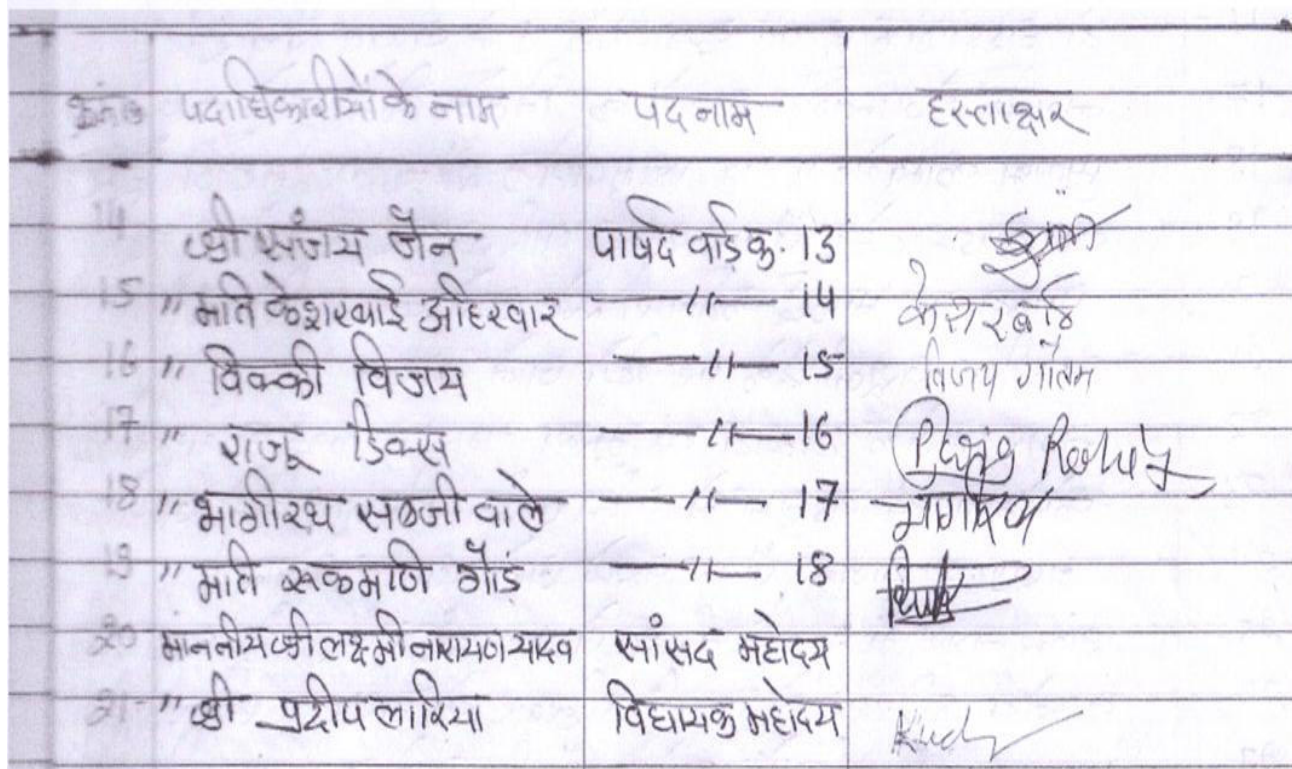 पदाधिकारीयों के नाम पदनाम हस्ताक्षर
14 श्री संजय जैन पार्षद वार्ड क्र. 13
15 " मति केशरबाई अहिरवार —"— 14 केशर बाई
16 " विक्की विजय —"— 15 विजय गौतम
17 " राजू डिक्स —"— 16
18 " भागीरथ सब्जी वाले —"— 17
19 " मति रूकमणि गौंड —"— 18
20 माननीय श्री लक्ष्मीनारायण यादव सांसद महोदय
21 " श्री प्रदीप लारिया विधायक महोदय